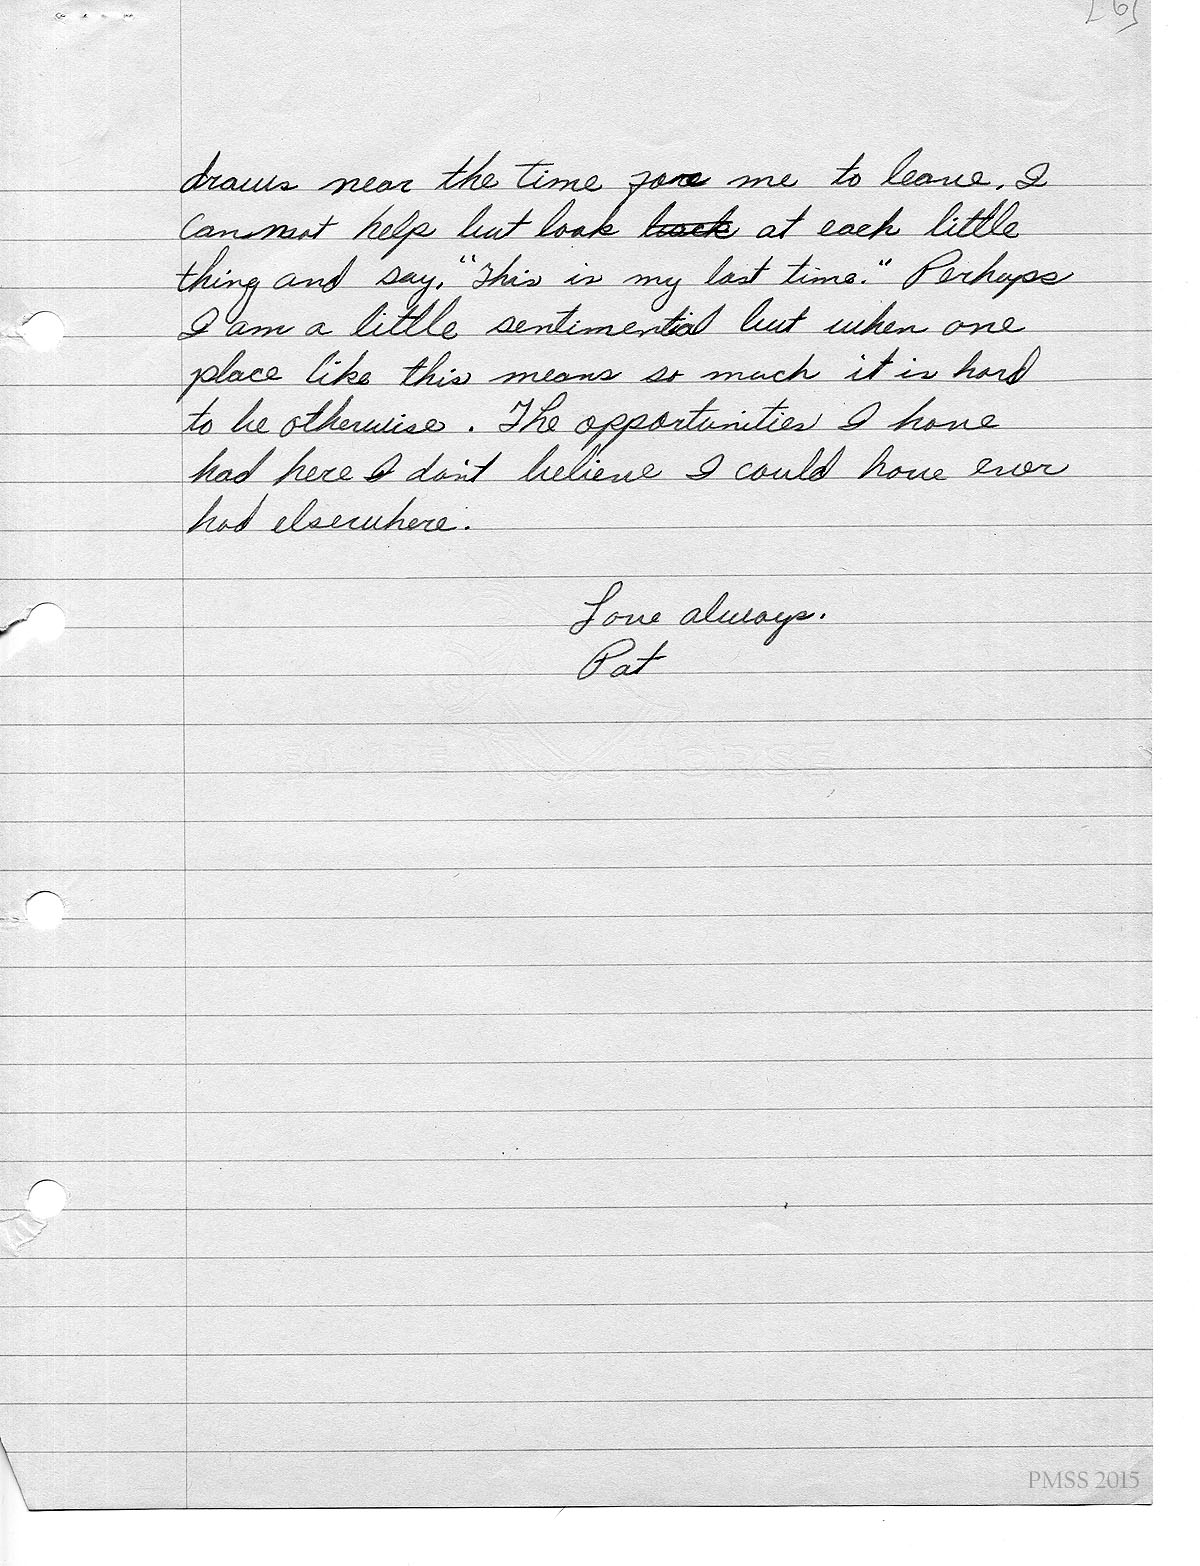 [6]
draws near the time for me to leave. I
cannot help but look back at each little
thing and say, "This is my last time." Perhaps
I am a little sentimential but when one
place like this means so much it is hard
to be otherwise. The opportunities I have
had here I don't believe I could have ever
had elsewhere.
Love always.
Pat
BLUE HORSE
PMSS 2015